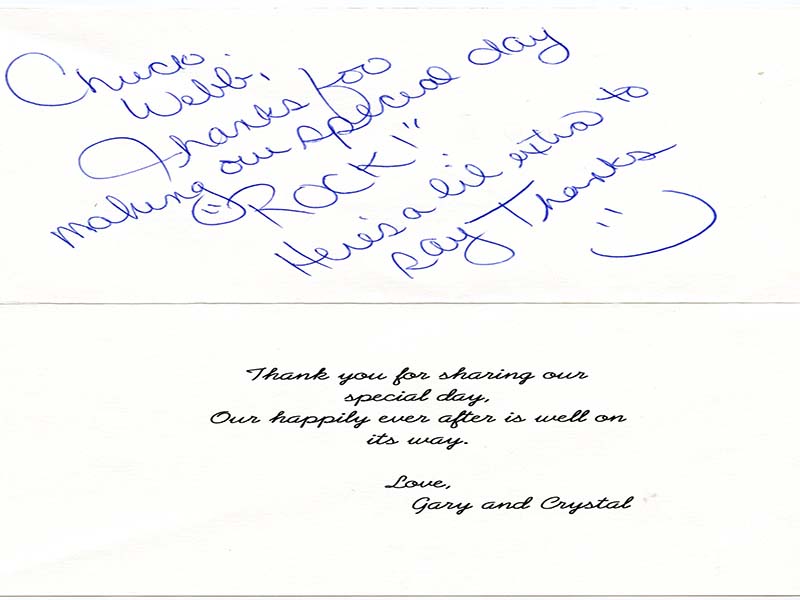 Chuck
Webb,
Thanks for
making our special day
"ROCK!"
Here's a lil extra to
say Thanks
Thank you for sharing our
special day,
Our happily ever after is well on
its way.
Love,
Gary and Crystal